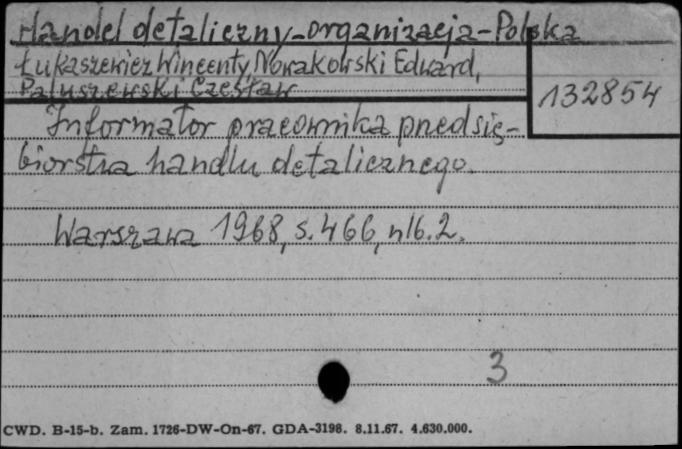 Handel detaliczny-organizacja-Polska
Łukaszewicz Wincenty, Nowakowski Edward,
Paluszewski Czesław
132854
Informator pracownika przedsię-
biorstwa handlu detalicznego.
Warszawa 1968, s. 466, nlb. 2.
3
CWD. B-15-b. Zam. 1726-DW-On-67. GDA-3198. 8.11.67. 4.630.000.